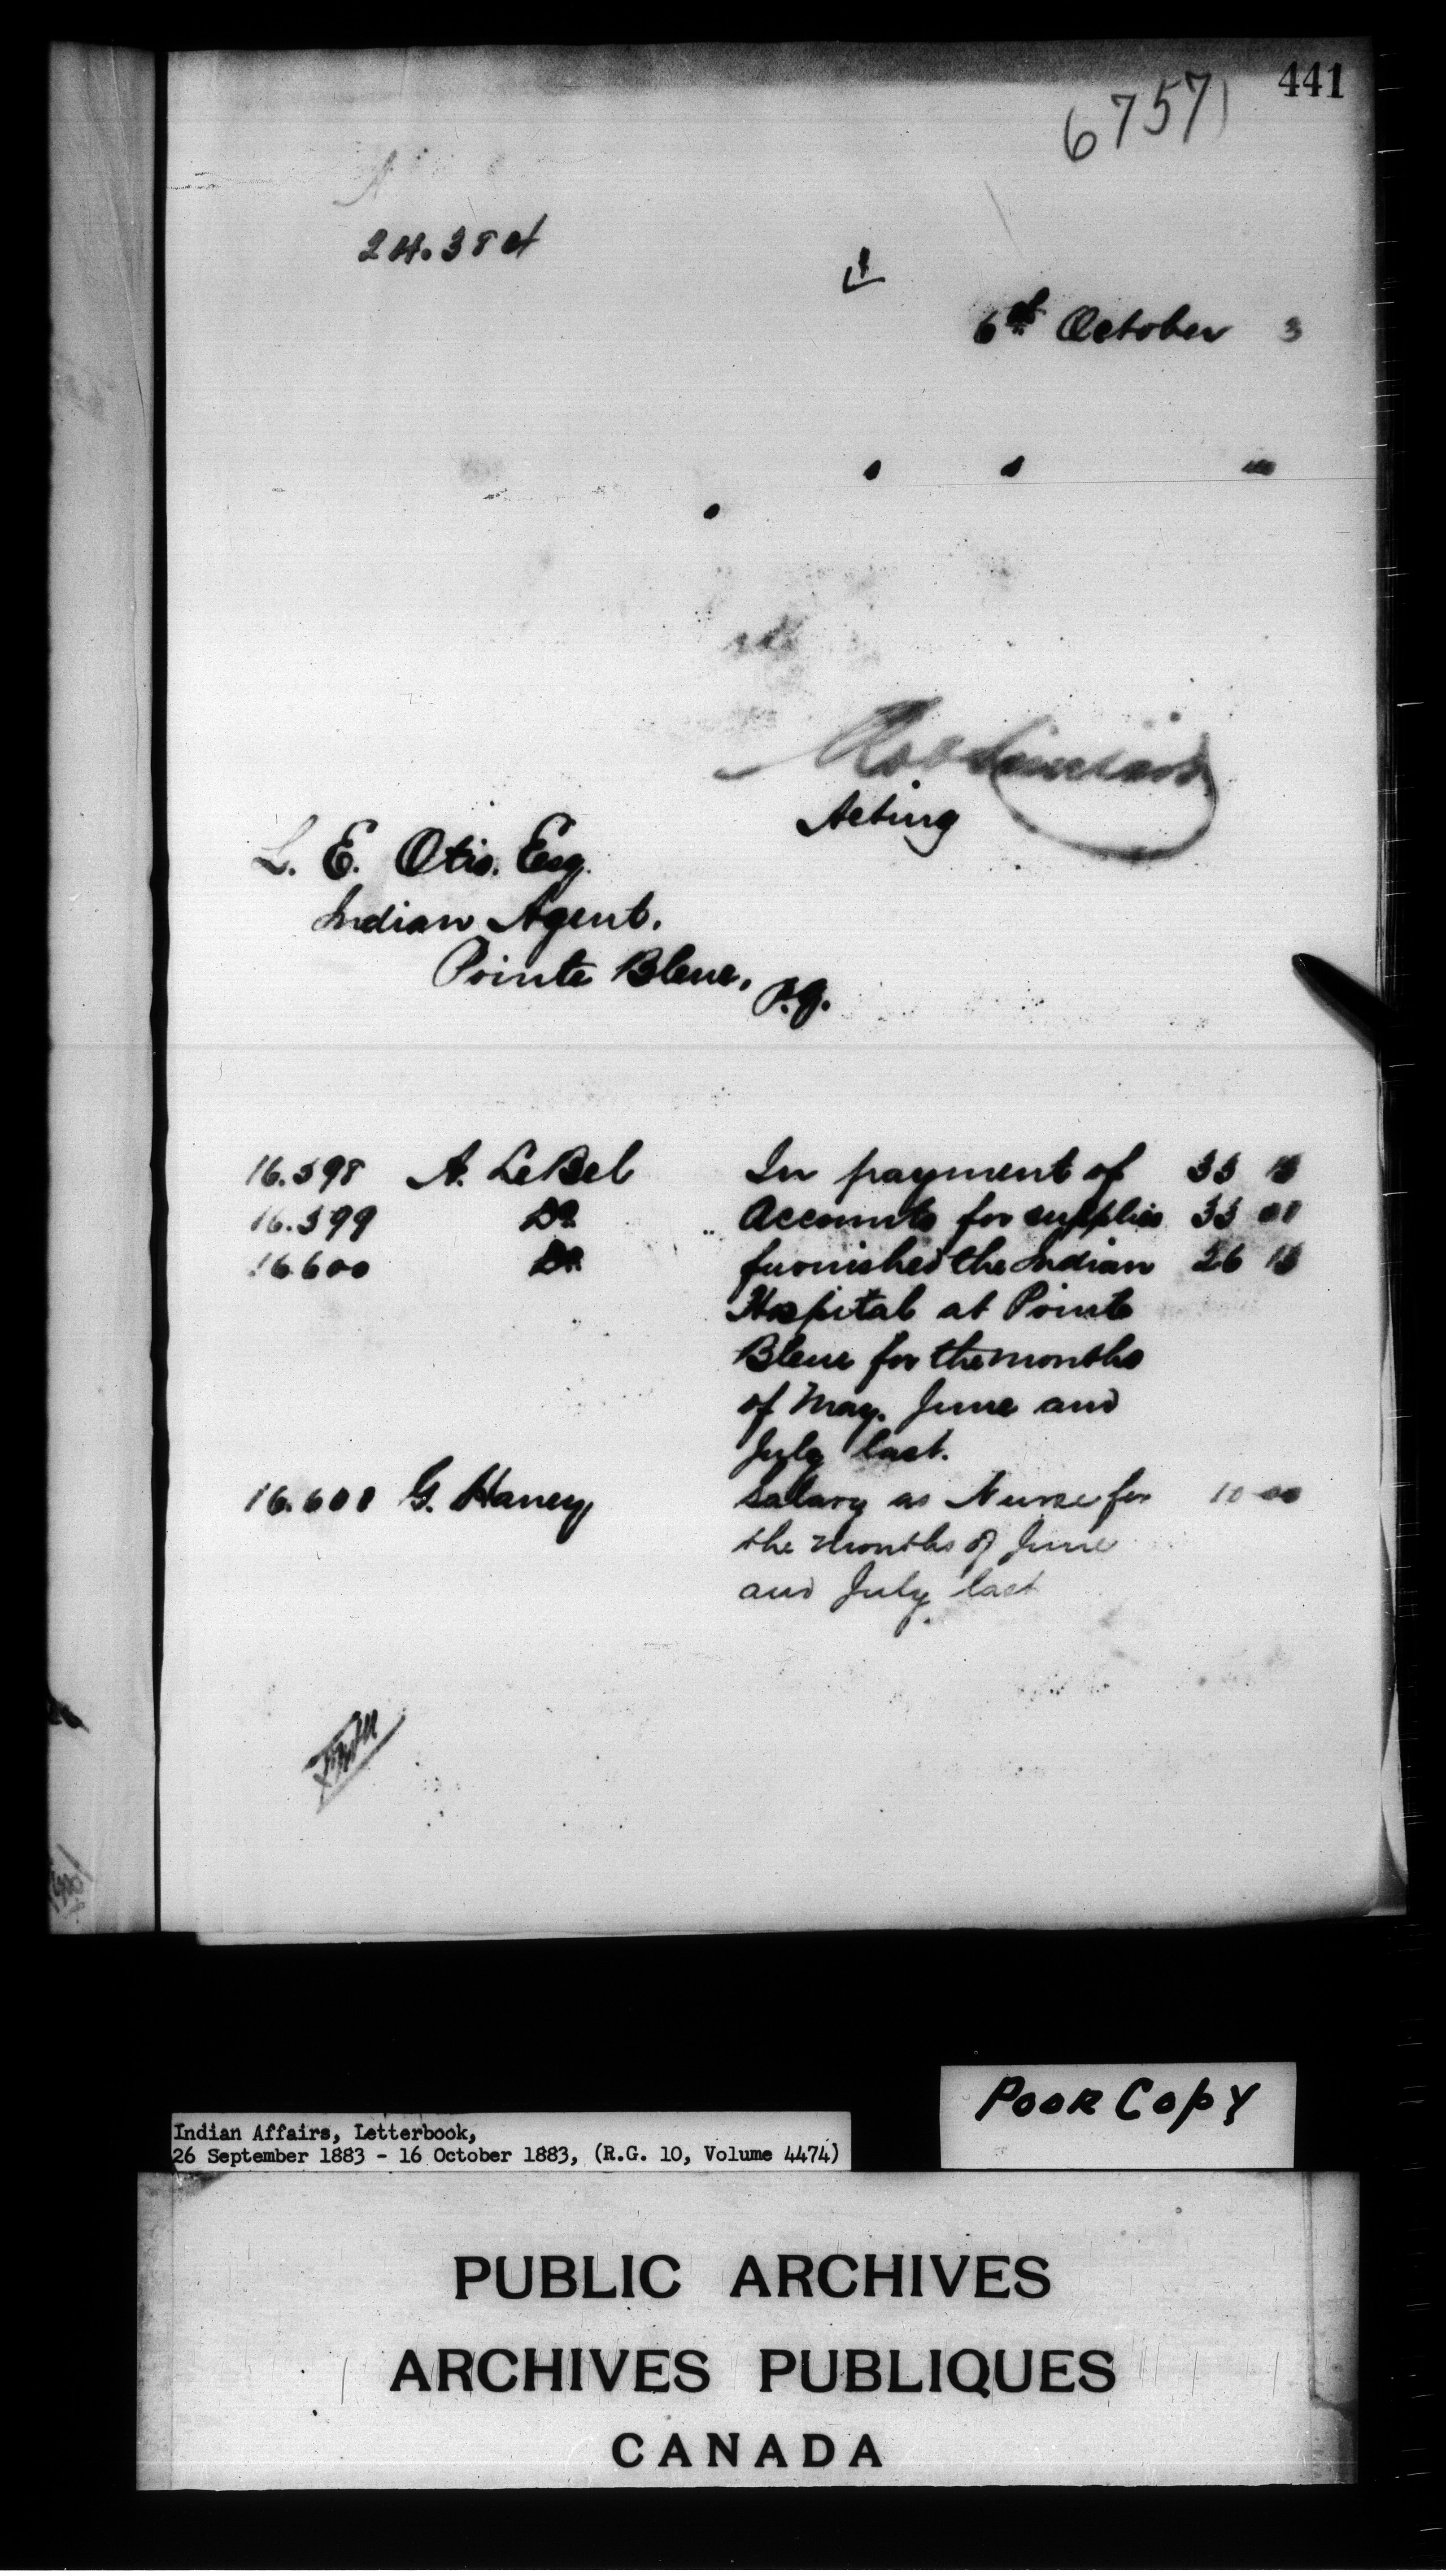 441
6757
24.384
6th October 3
Rob Sinclair
Acting
L. E. Otis. Esq.
Indian Agent.
Pointe Bleue,
P.Q.
16.598 A. LeBel In payment of 33
16.599 Do. Accounts for supplies 33
16.600 Do. furnished the Indian 26
Hospital at Pointe
Bleue for the months
of May. June and
July last.
16.601 G. Haney, Salary as Nurse for 10 00
the months of June
and July last
POOR COPY
Indian Affairs, Letterbook,
26 September 1883 - 16 October 1883, (R.G. 10, Volume 4474)
PUBLIC ARCHIVES
ARCHIVES PUBLIQUES
CANADA